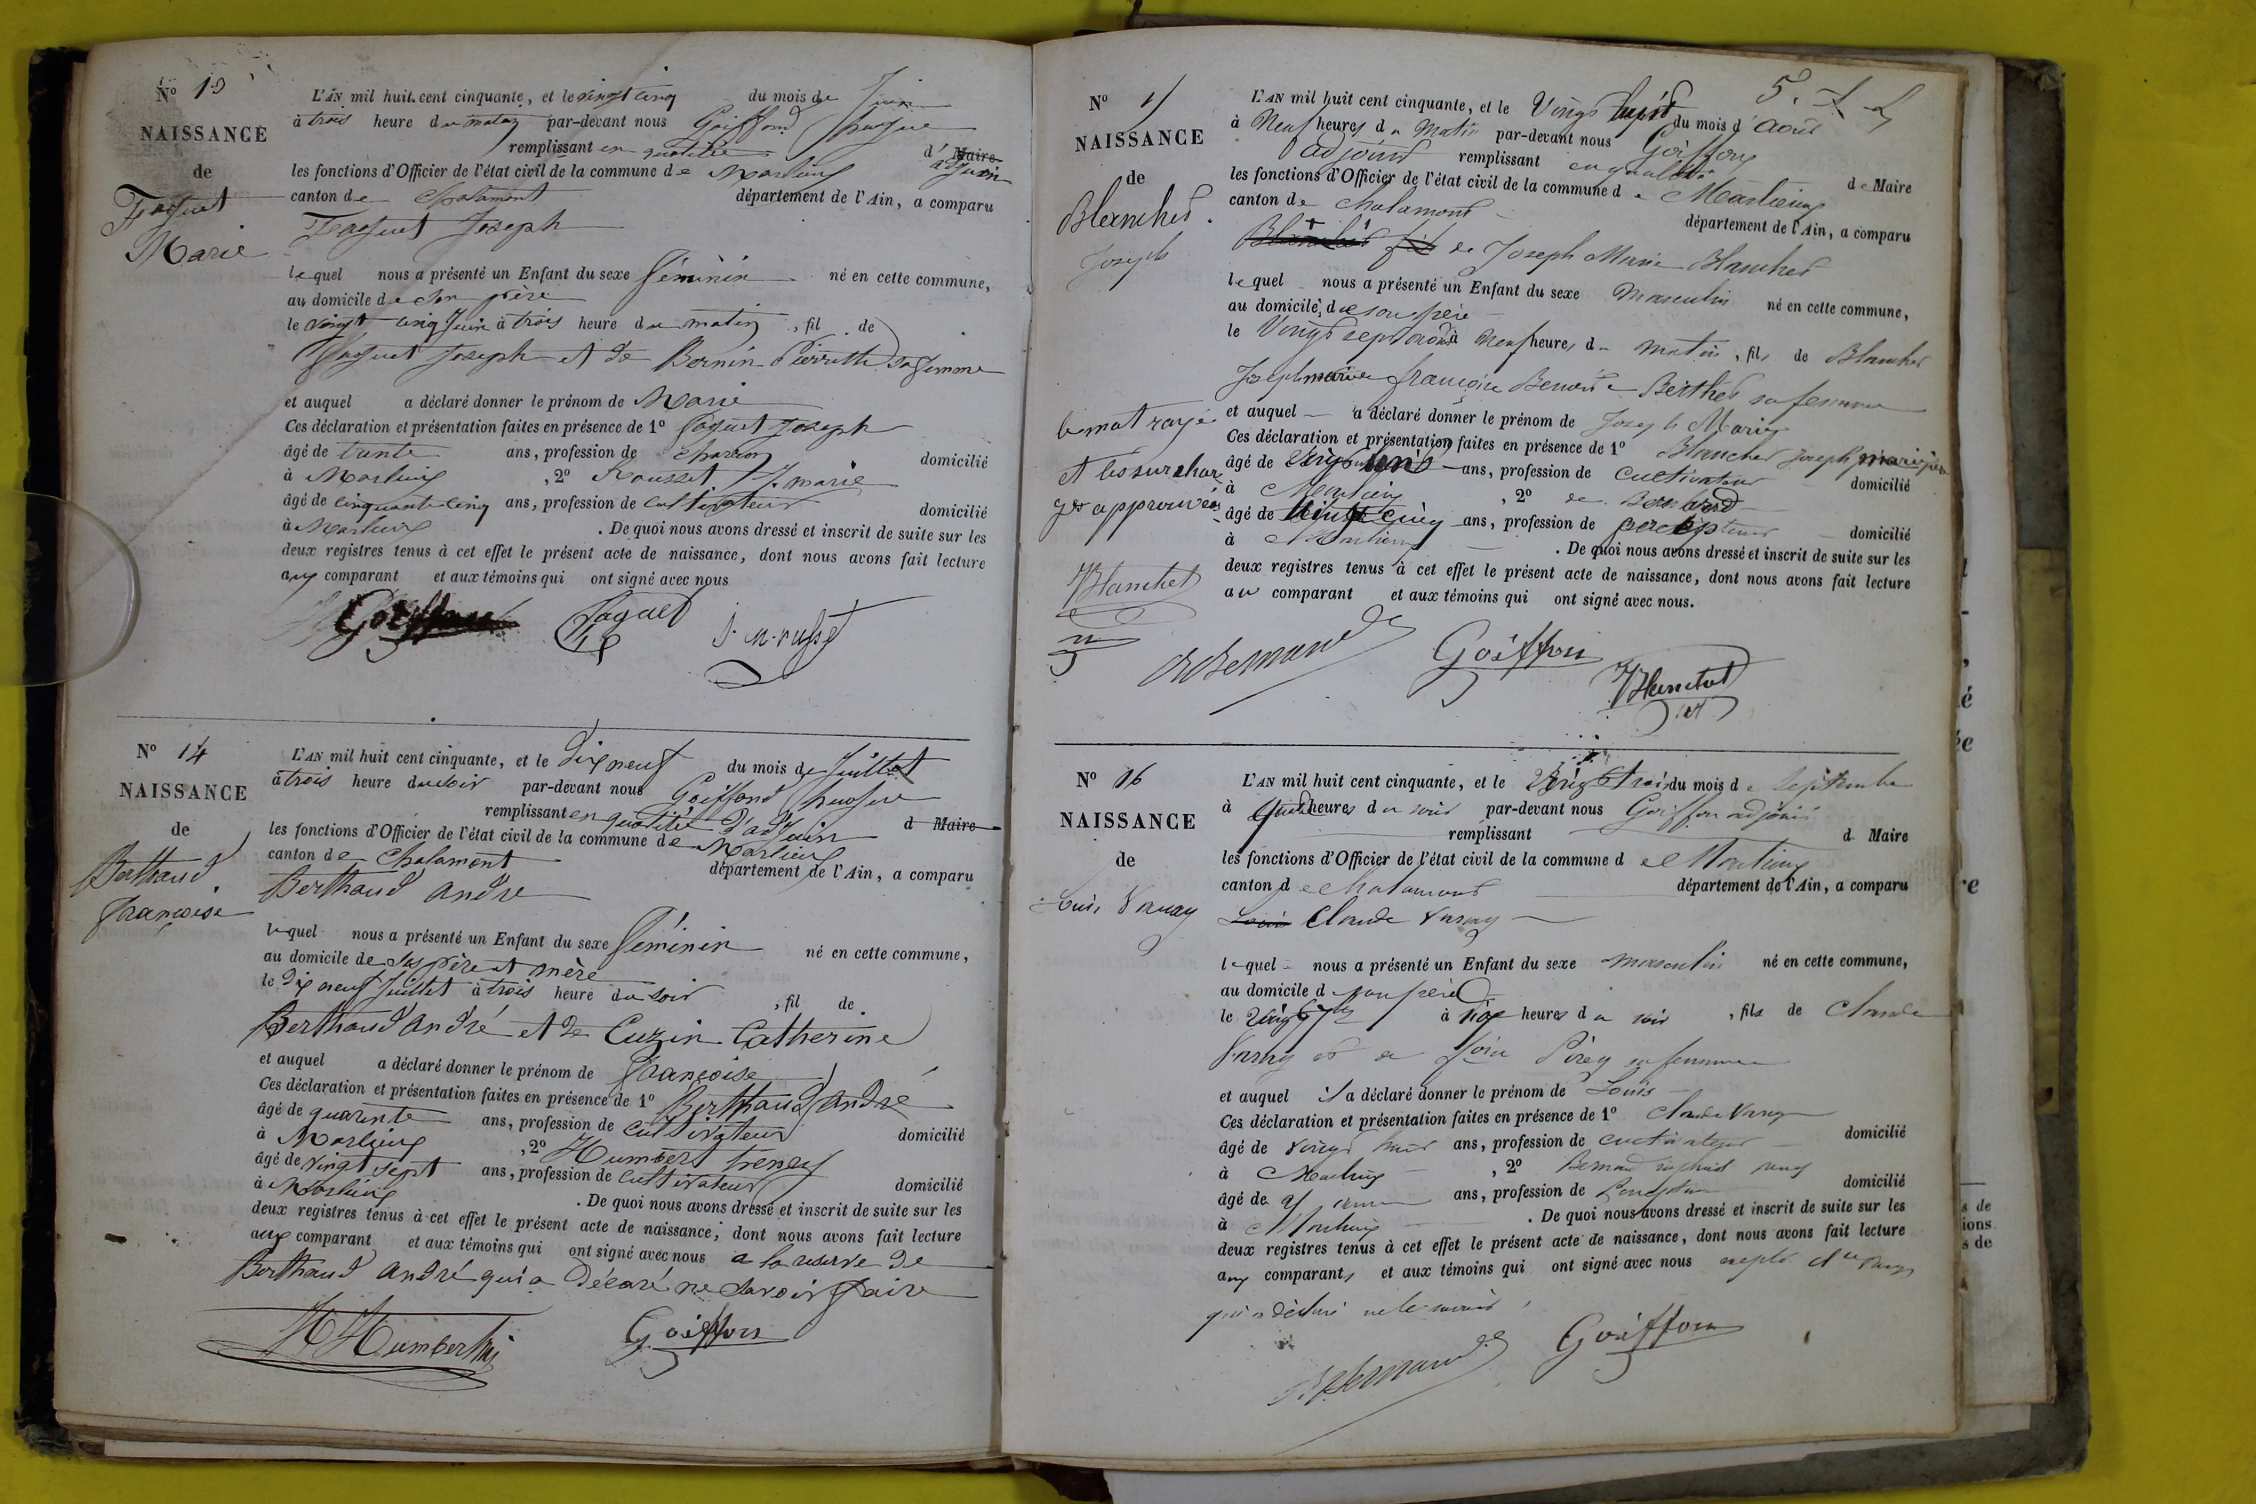 N° 13
NAISSANCE
de
Faguet
Marie
L'AN mil huit cent cinquante, et le vingt cinq du mois de Juin
à trois heure du matin par-devant nous Goiffond
remplissant en qualité d' Maire
adjoin
les fonctions d'Officier de l'état civil de la commune de Marlieux
canton de Chalamont département de l'Ain, a comparu
Faguet Joseph
lequel nous a présenté un Enfant du sexe féminin né en cette commune,
au domicile de son père
le vingt cinq Juin à trois heure du matin, fil de
Faguet Joseph et de Bernin Pierrette sa femme
et auquel a déclaré donner le prénom de Marie
Ces déclaration et présentation faites en présence de 1° Faguet Joseph
âgé de trente ans, profession de charron domicilié
à Marlieux, 2° Rousset J. marie
âgé de cinquante cinq ans, profession de cultivateur domicilié
à Marlieux. De quoi nous avons dressé et inscrit de suite sur les
deux registres tenus à cet effet le présent acte de naissance, dont nous avons fait lecture
aux comparant et aux témoins qui ont signé avec nous
Goiffon Faguet
N° 14
NAISSANCE
de
Berthaud
françoise
L'AN mil huit cent cinquante, et le dix neuf du mois de Juillet
à trois heure du soir par-devant nous Goiffond
remplissant en qualité d'adjoin d Maire
les fonctions d'Officier de l'état civil de la commune de Marlieux
canton de Chalamont département de l'Ain, a comparu
Berthaud andre
lequel nous a présenté un Enfant du sexe féminin né en cette commune,
au domicile de ses père et mère
le dix neuf Juillet à trois heure du soir, fil de
Berthaud andré et de Cuzin Catherine
et auquel a déclaré donner le prénom de françoise
Ces déclaration et présentation faites en présence de 1° Berthaud andré
âgé de quarente ans, profession de cultivateur domicilié
à Marlieux, 2° Humbert
âgé de vingt sept ans, profession de cultivateur domicilié
à Marlieux. De quoi nous avons dressé et inscrit de suite sur les
deux registres tenus à cet effet le présent acte de naissance, dont nous avons fait lecture
aux comparant et aux témoins qui ont signé avec nous a la reserve de
Berthaud andré qui a décaré ne savoir faire
Goiffon
N°
NAISSANCE
de
Blanchet
Joseph
L'AN mil huit cent cinquante, et le Vingt sept du mois d'août
à Neuf heures du matin par-devant nous Goiffon
adjoint remplissant en qualité de Maire
les fonctions d'Officier de l'état civil de la commune de Marlieux
canton de chalamont département de l'Ain, a comparu
Joseph Marie Blanchet
lequel nous a présenté un Enfant du sexe Masculin né en cette commune,
au domicile de son père
le Vingt sept août à Neuf heures du matin, fils de Blanchet
Joseph marie françoise Benoite Berthet sa femme
et auquel a déclaré donner le prénom de Joseph Marie
Ces déclaration et présentation faites en présence de 1° Blanchet Joseph marie
âgé de ans, profession de cultivateur domicilié
à Marlieux, 2° de Bernard
âgé de vingt cinq ans, profession de percepteur domicilié
à Marlieux. De quoi nous avons dressé et inscrit de suite sur les
deux registres tenus à cet effet le présent acte de naissance, dont nous avons fait lecture
au comparant et aux témoins qui ont signé avec nous.
le mot rayé
et les surchar
ges approuvés
Blanchet
Goiffon Blanchet
N° 16
NAISSANCE
de
Louis Varnay
L'AN mil huit cent cinquante, et le Vingt trois du mois de Septembre
à heures du soir par-devant nous Goiffon adjoint
remplissant d Maire
les fonctions d'Officier de l'état civil de la commune de Marlieux
canton de chalamont département de l'Ain, a comparu
Louis Claude
lequel nous a présenté un Enfant du sexe masculin né en cette commune,
au domicile d son père
le à heures du soir, fils de Claude
sa femme
et auquel il a déclaré donner le prénom de Louis
Ces déclaration et présentation faites en présence de 1° Claude
âgé de vingt huit ans, profession de cultivateur domicilié
à Marlieux, 2° Bernard
âgé de ans, profession de Percepteur domicilié
à Marlieux. De quoi nous avons dressé et inscrit de suite sur les
deux registres tenus à cet effet le présent acte de naissance, dont nous avons fait lecture
aux comparants et aux témoins qui ont signé avec nous
qui a déclaré ne le savoir
Goiffon